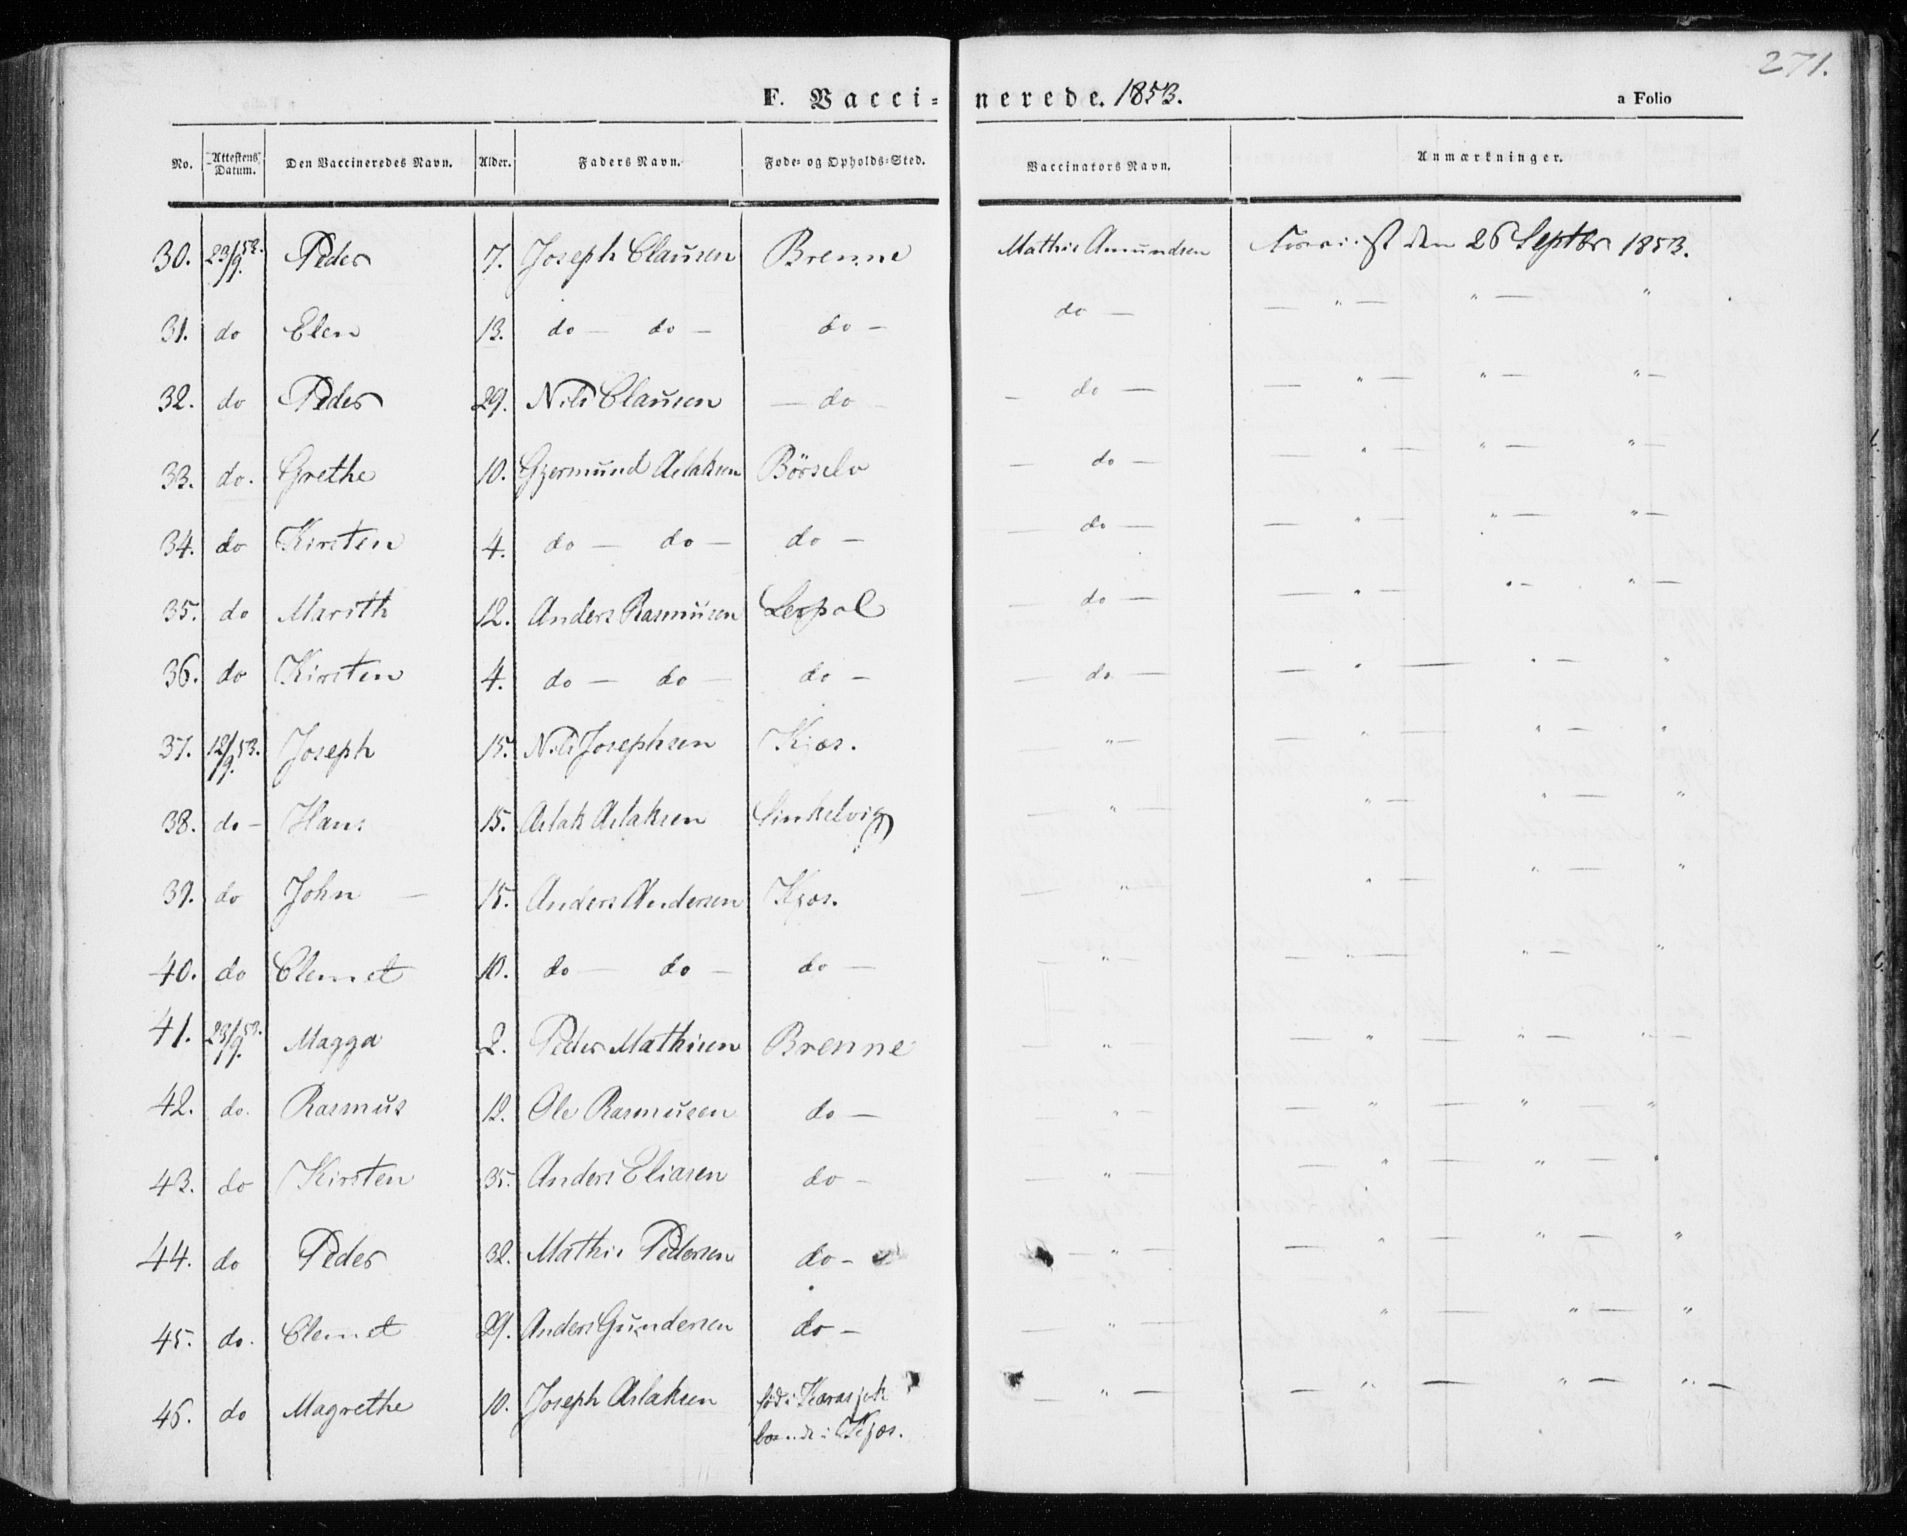 271.
F. Vacci- nerede. 1853. a Folio
No. Attestens Datum. Den Vaccineredes Navn. Alder. Faders Navn. Føde- og Opholds-Sted. Vaccinators Navn. Anmærkninger.
30. 23/9 53. Peder 7. Joseph Clausen Brenne Mathis Amundsen den 26 Septbr 1853.
31. do Elen 13. do — do — do — do — — " — " — "
32. do Peder 29. Nils Clausen — do — — do — — " — " — " —
33. do. Grethe 10. Gjermund Aslaksen Börselv — do — — " — " — " —
34. do Kirsten 4. do — do — do — — do — — " — " — " —
35. do Marith 12. Anders Rasmusen Leopol — do — — " — " — " —
36. do Kirsten 4. do — do — do — — do — — " — " — "
37. 12/9 53. Joseph 15. Nils Josephsen Kjæs. — " — — " — " — "
38. do — Hans 15. Aslak Aslaksen Sinkelvig — " — " — " — "
39. do John — 15. Anders Andersen Kjæs. — " " — " — "
40. do Clemet 10. do — do — do — — " — — " — " — "
41. 23/9 53. Magga 2. Peder Mathisen Brenne — " — " — " — " —
42. do. Rasmus 12. Ole Rasmusen do — — " — — " — " — "
43. do Kirsten 35. Anders Eliasen do — — " — — " — " — "
44. do Peder 32. Mathis Pedersen do — — " — — " — " — "
45. do. Clemet 29. Anders Gundersen do — — " — " — " — "
46. do Magrethe 10. Joseph Aslaksen fød i Karasjok — " — — " — " — " —
boende i Kjæs.